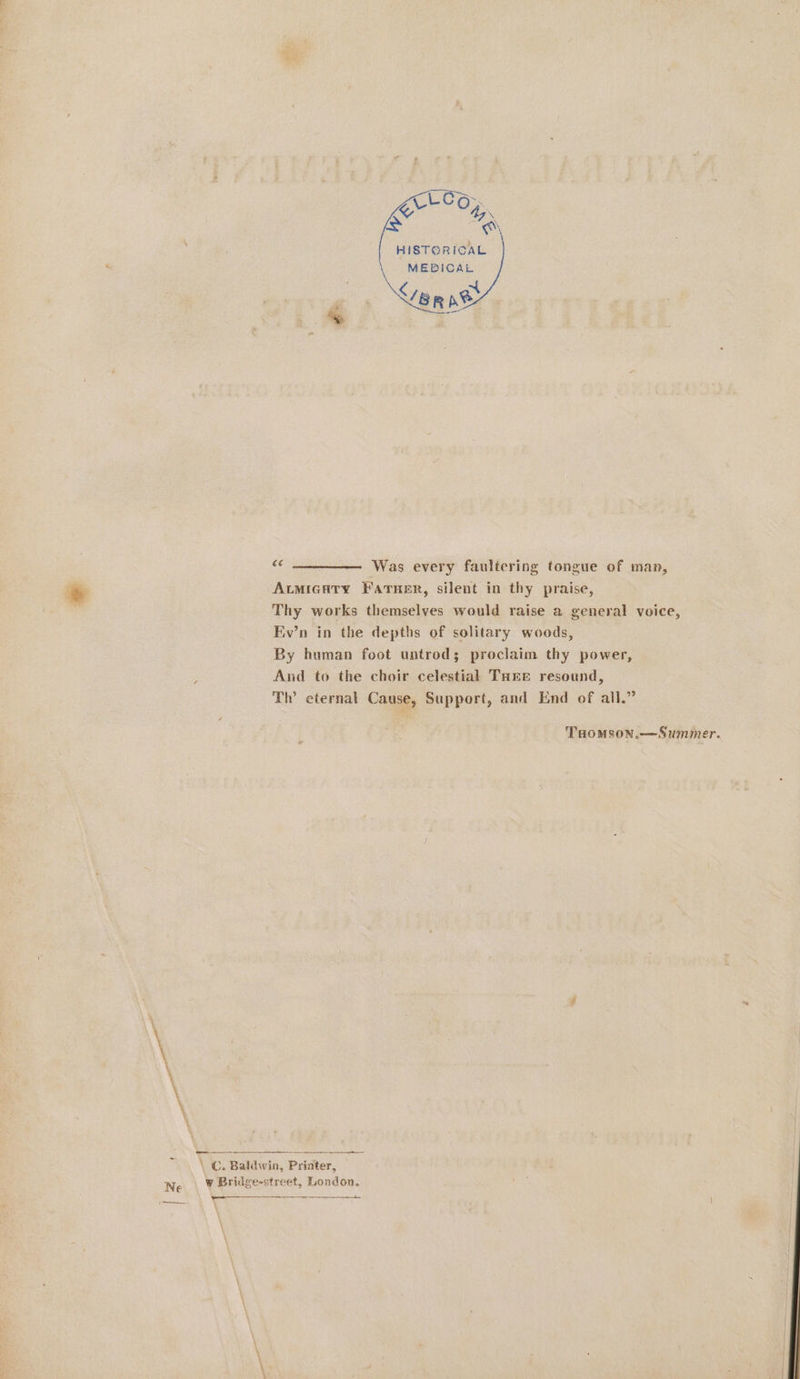 WELLCOME
HISTORICAL
MEDICAL
LIBRARY
“ ———— Was every faultering tongue of man,
ALMIGHTY FATHER, silent in thy praise,
Thy works themselves would raise a general voice,
Ev’n in the depths of solitary woods,
By human foot untrod; proclaim thy power,
And to the choir celestial THEE resound,
Th’ eternal Cause, Support, and End of all.”
THOMSON.—Summer.
C. Baldwin, Printer,
Ne w Bridge-street, London.